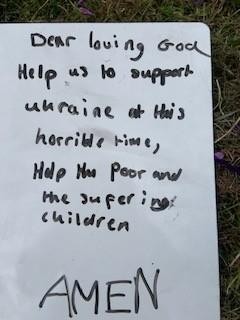 Dear loving God
Help us to support
ukraine at this
horrible time,
Help the Poor and
the sufering
children
AMEN